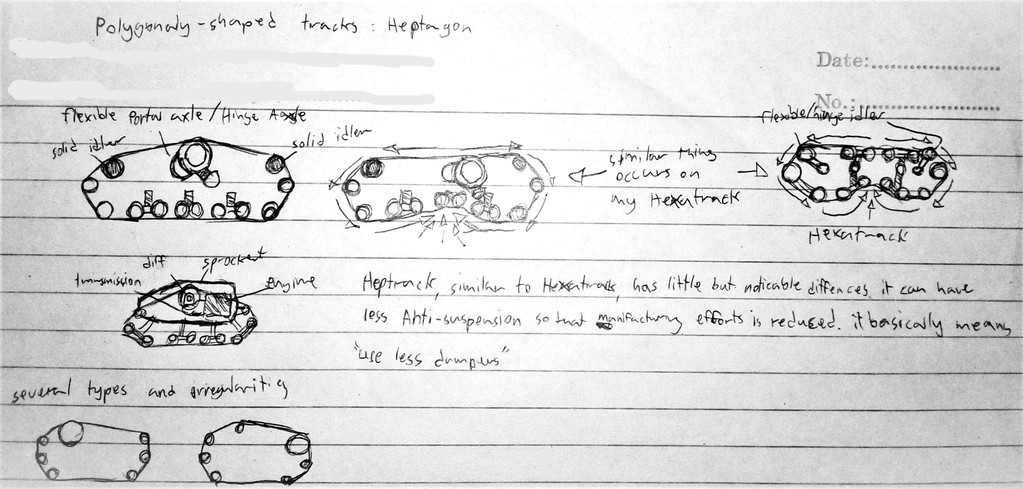 Polygonaly-shaped tracks : Heptagon
Date:
No.:
flexible Portal axle/Hinge Axle
solid idler
solid idler
flexible/hinge idler
similar thing
occurs on
my Hexatrack
Hexatrack
diff
sprocket
transmission
engine
Heptrack, similar to Hexatrack, has little but noticable diffences. it can have
less Anti-suspension so that manifacturing efforts is reduced. it basically means
"use less dampers"
several types and irregularities